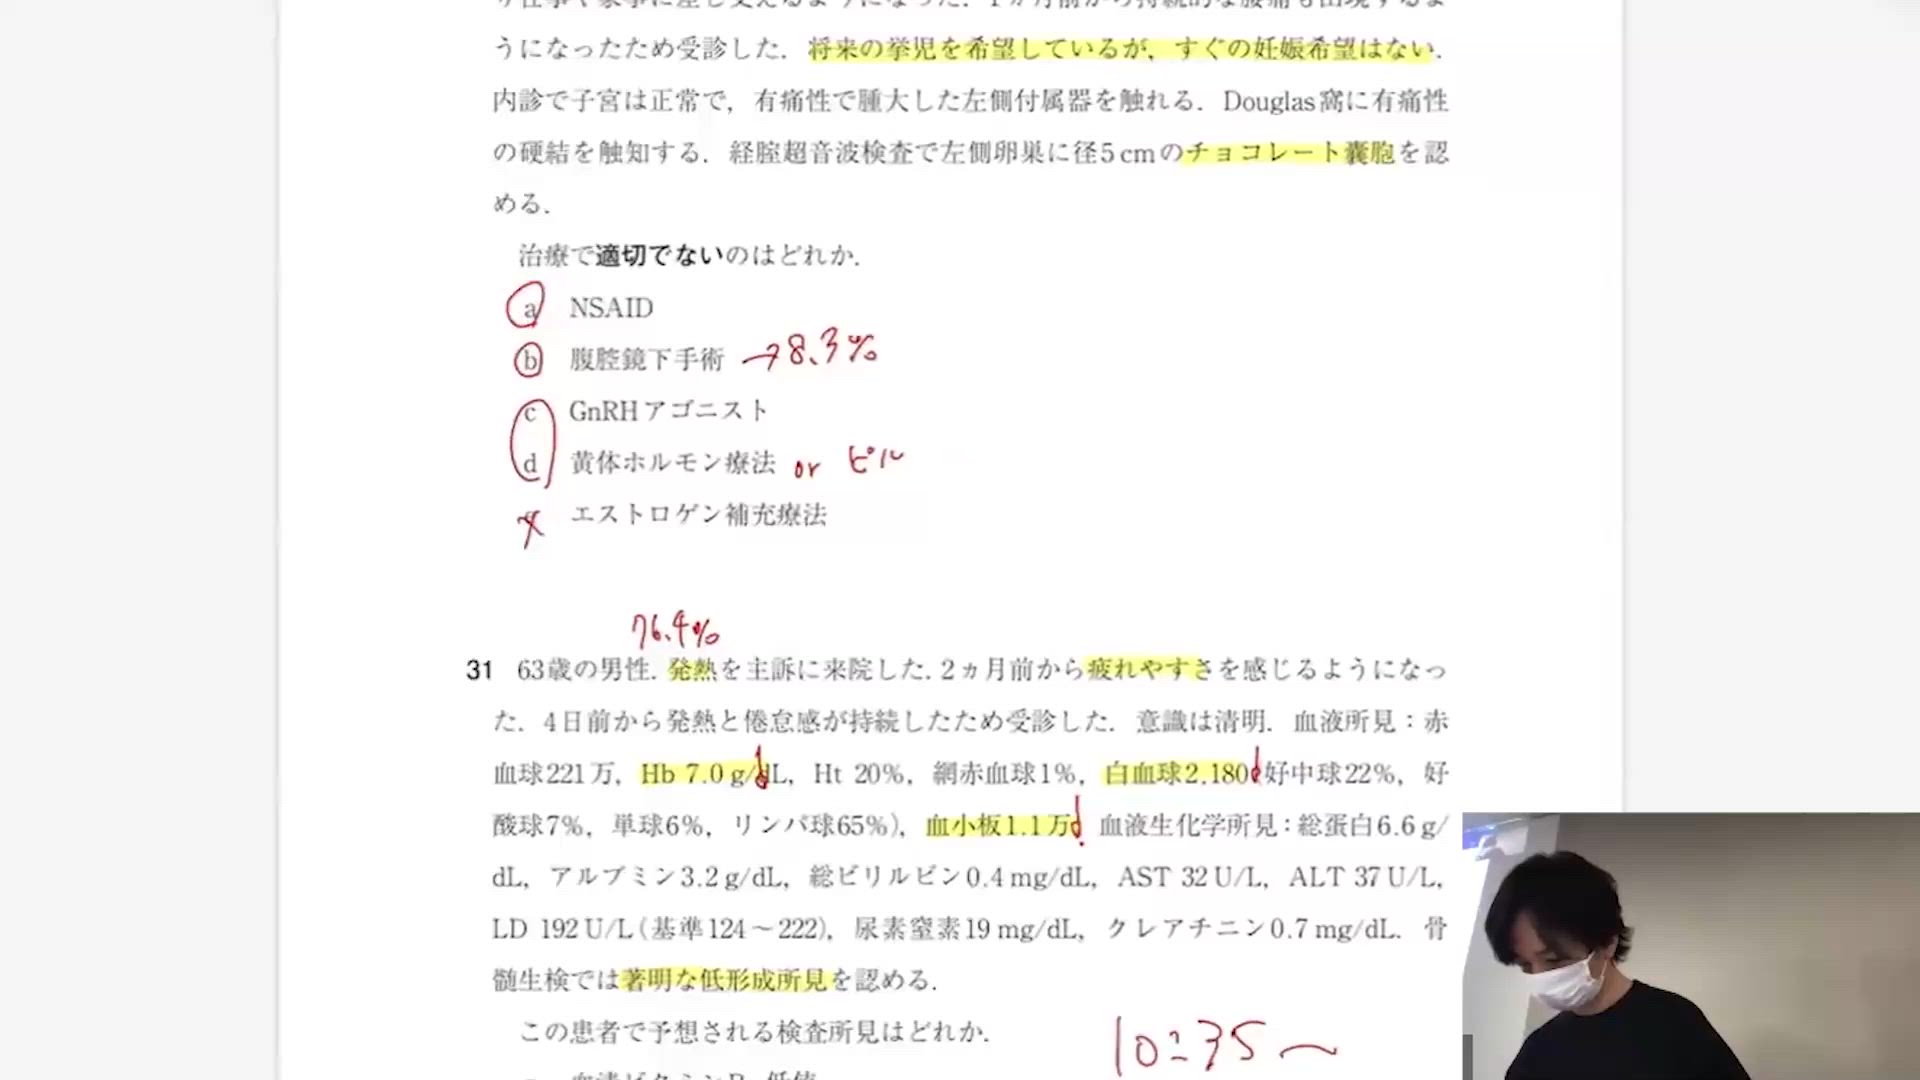 り仕事や家事に差し支えるようになった．1ヵ月前から持続的な腰痛も出現するよ
うになったため受診した．将来の挙児を希望しているが，すぐの妊娠希望はない．
内診で子宮は正常で，有痛性で腫大した左側付属器を触れる．Douglas窩に有痛性
の硬結を触知する．経腟超音波検査で左側卵巣に径5cmのチョコレート嚢胞を認
める．
治療で適切でないのはどれか．
a NSAID
b 腹腔鏡下手術 →8.3%
c GnRHアゴニスト
d 黄体ホルモン療法 or ピル
エストロゲン補充療法
76.4%
31 63歳の男性．発熱を主訴に来院した．2ヵ月前から疲れやすさを感じるようになっ
た．4日前から発熱と倦怠感が持続したため受診した．意識は清明．血液所見：赤
血球221万，Hb 7.0 g/dL，Ht 20%，網赤血球1%，白血球2,180 好中球22%，好
酸球7%，単球6%，リンパ球65%)，血小板1.1万 血液生化学所見：総蛋白6.6 g/
dL，アルブミン3.2 g/dL，総ビリルビン0.4 mg/dL，AST 32 U/L，ALT 37 U/L，
LD 192 U/L（基準124～222)，尿素窒素19 mg/dL，クレアチニン0.7 mg/dL．骨
髄生検では著明な低形成所見を認める．
この患者で予想される検査所見はどれか．
10:35～